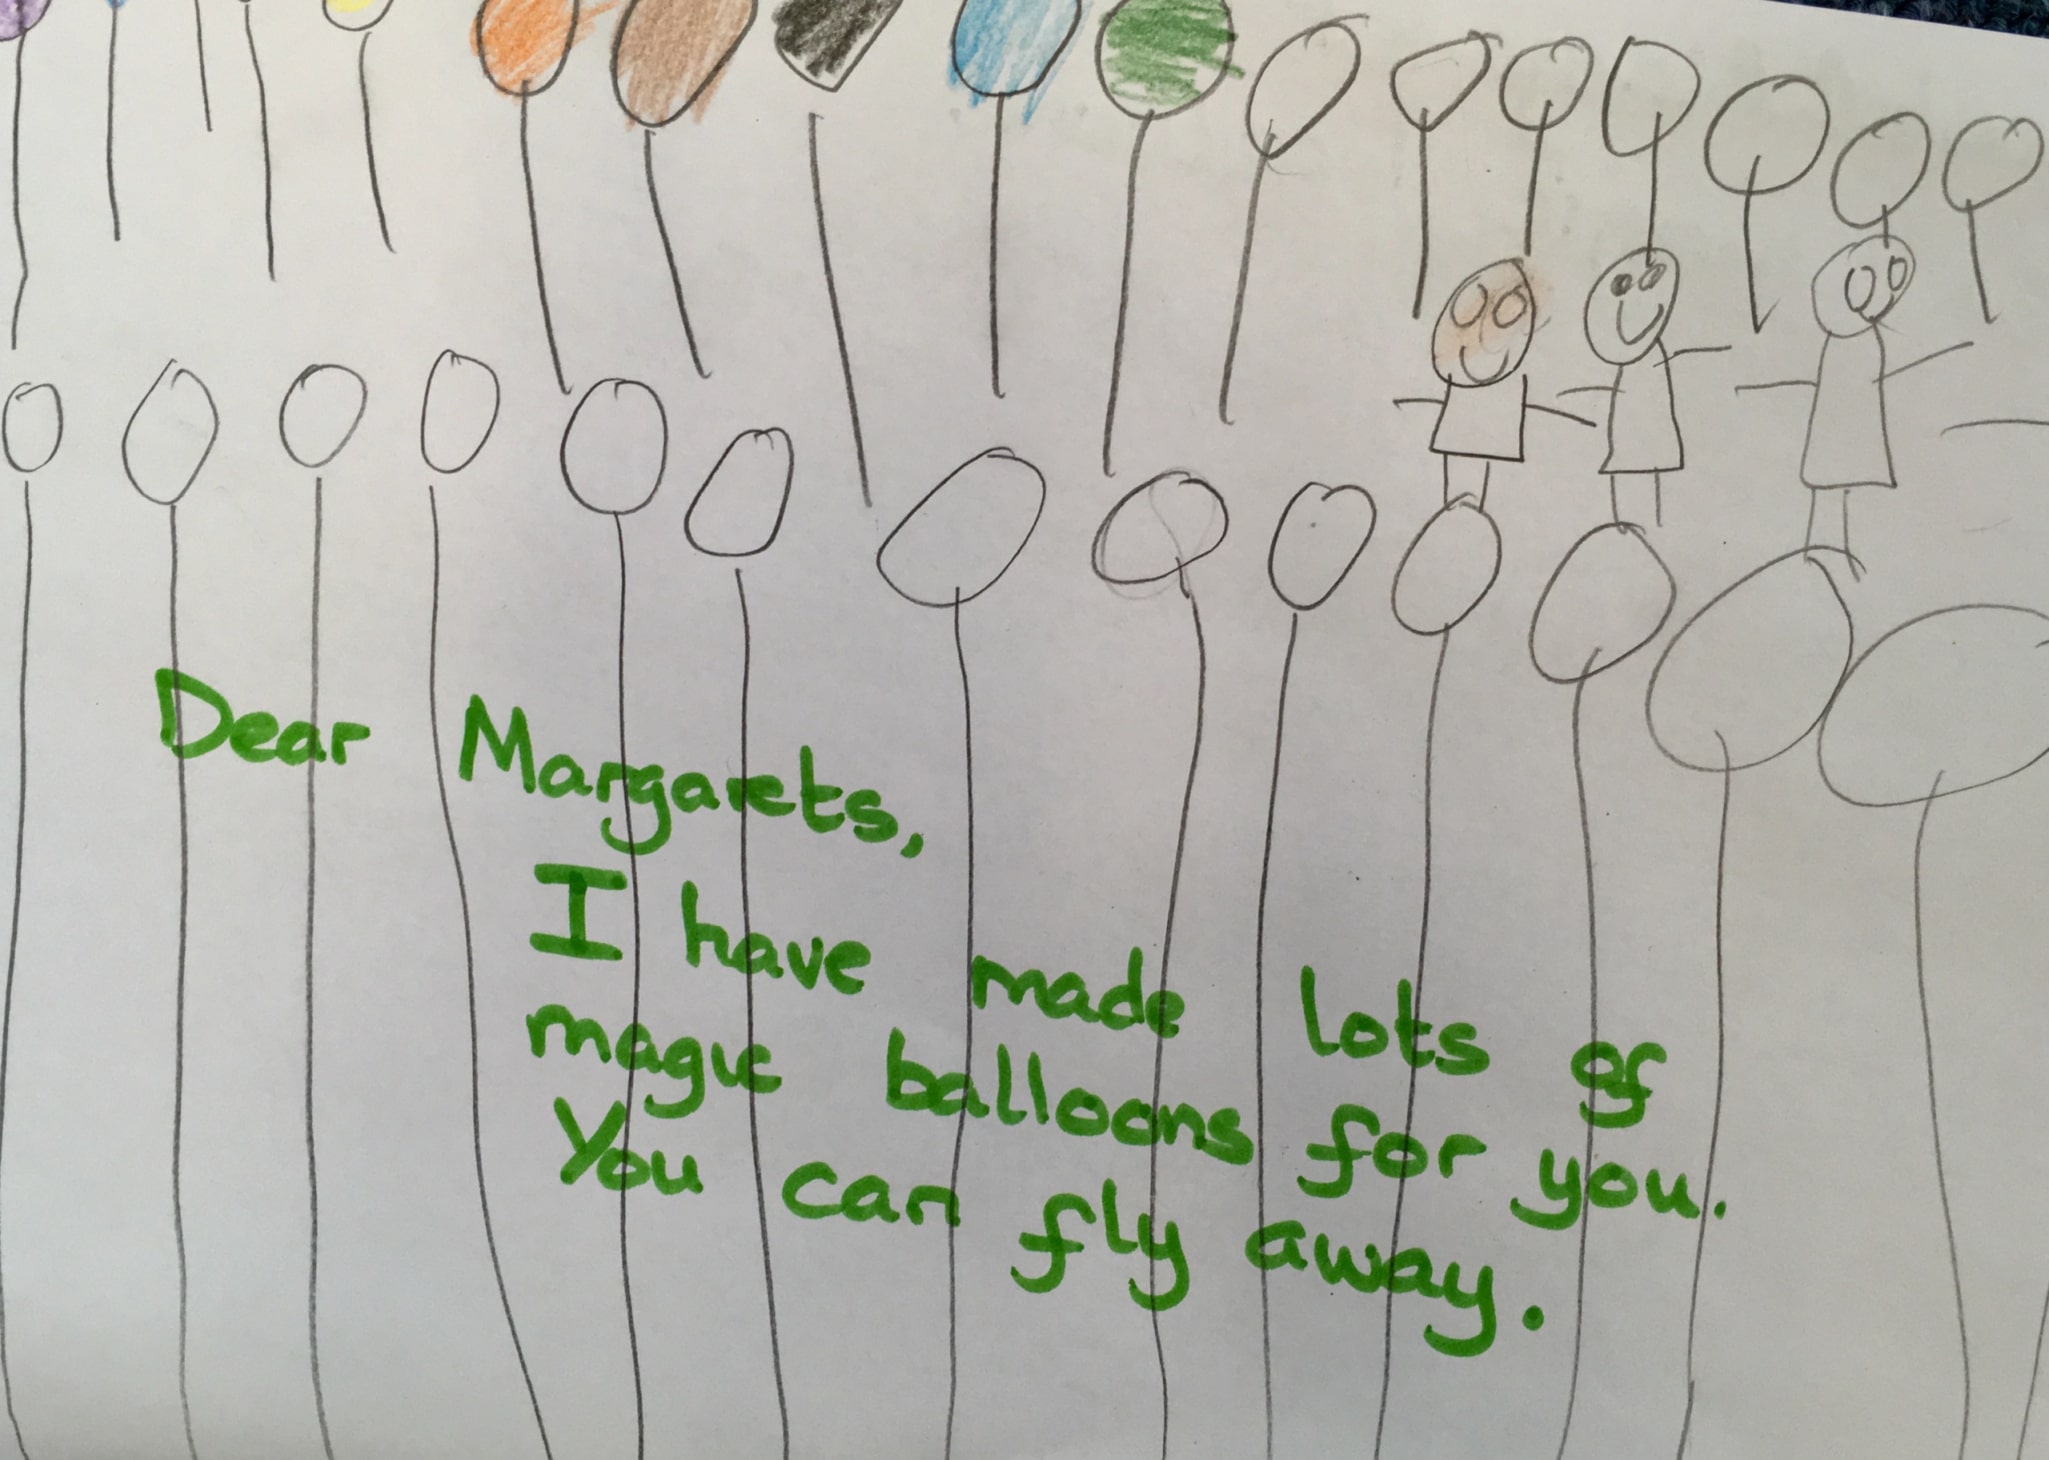 Dear Margarets,
I have made lots of
magic balloons for you.
You can fly away.